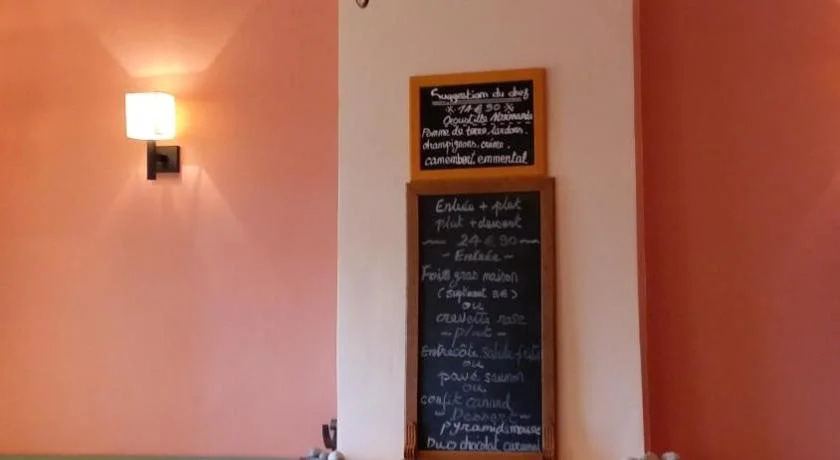 Suggestion du chef
14€90
Croustille Normande
Pomme de terre, lardons,
champignons, crème,
camembert, emmental
Entrée + plat
plat + dessert
24€90
- Entrée -
Foie gras maison
(Suplément 3€)
ou
crevette rose
- plat -
Entrecôte Salade frite
ou
pavé saumon
ou
confit canard
Dessert -
pyramid mousse
Duo chocolat caramel